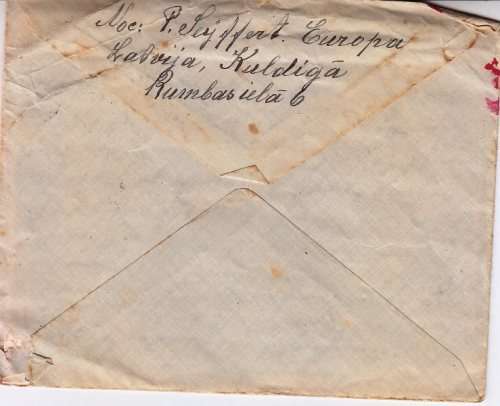 Noc: P. Seyffert. Europa
Latvija, Kuldīgā
Rumbas ielā 6